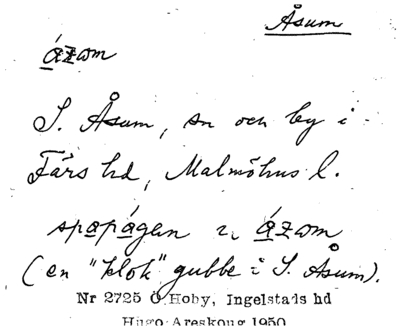 Åsum
ázom
S. Åsum, sn och by i
Färs hd, Malmöhus l.
spapágan i ázom
(en "klok" gubbe i S. Åsum).
Nr 2725 Ö. Hoby, Ingelstads hd
Hugo Areskoug 1950